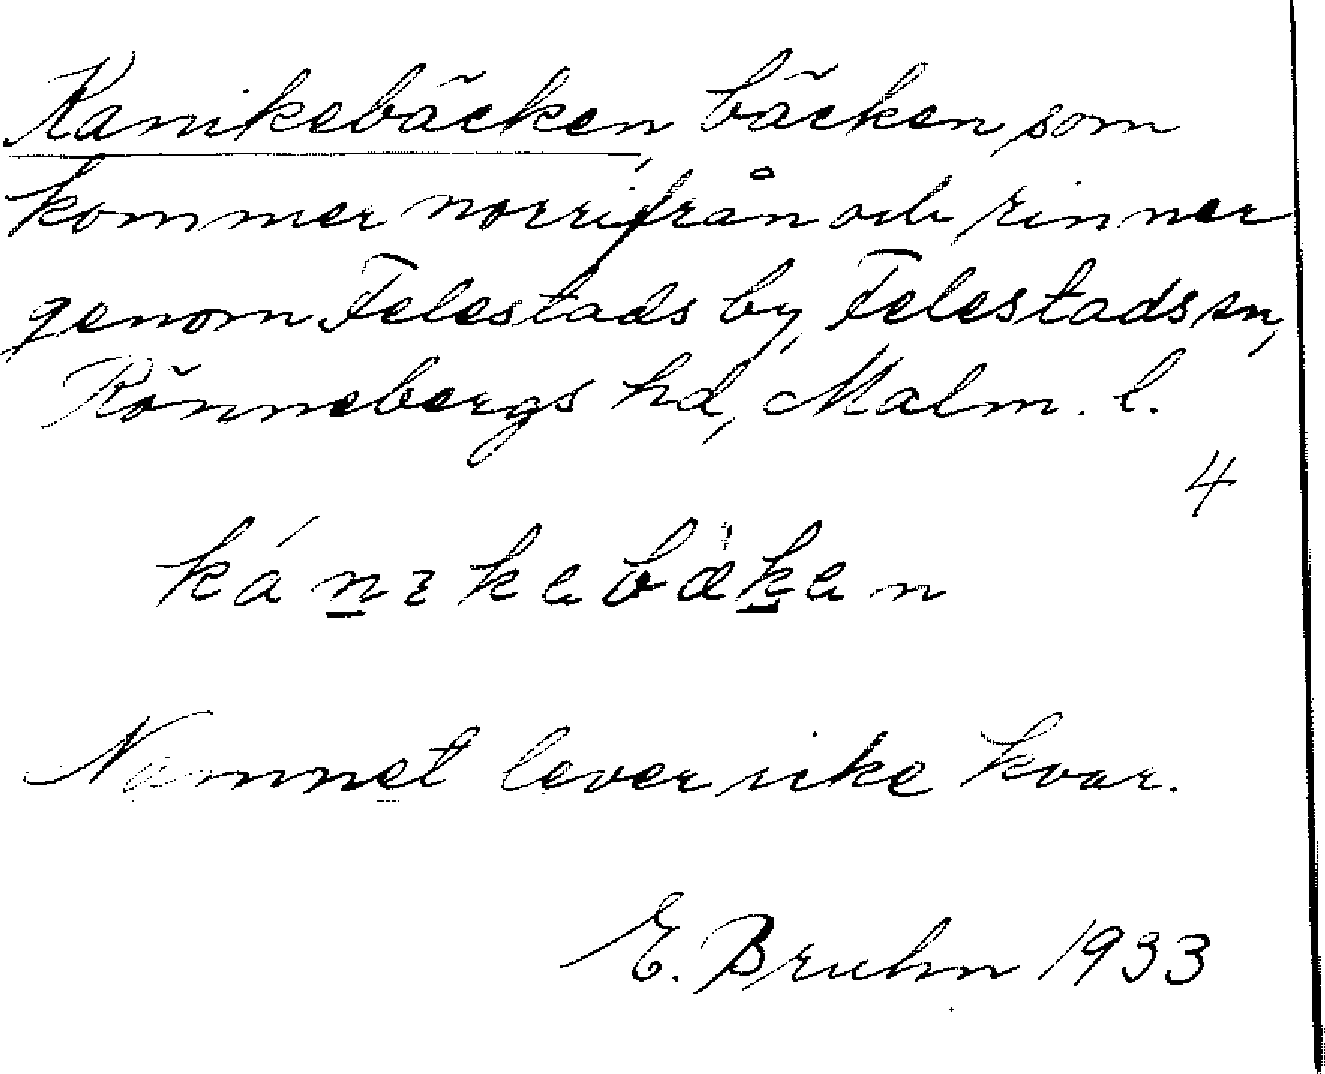 Kanikebäcken, bäcken som
kommer norrifrån och rinner
genom Felestads by, Felestads sn,
Rönnebergs hd, Malm. l.
4
kánıkebæken
Namnet lever icke kvar.
E. Bruhn 1933